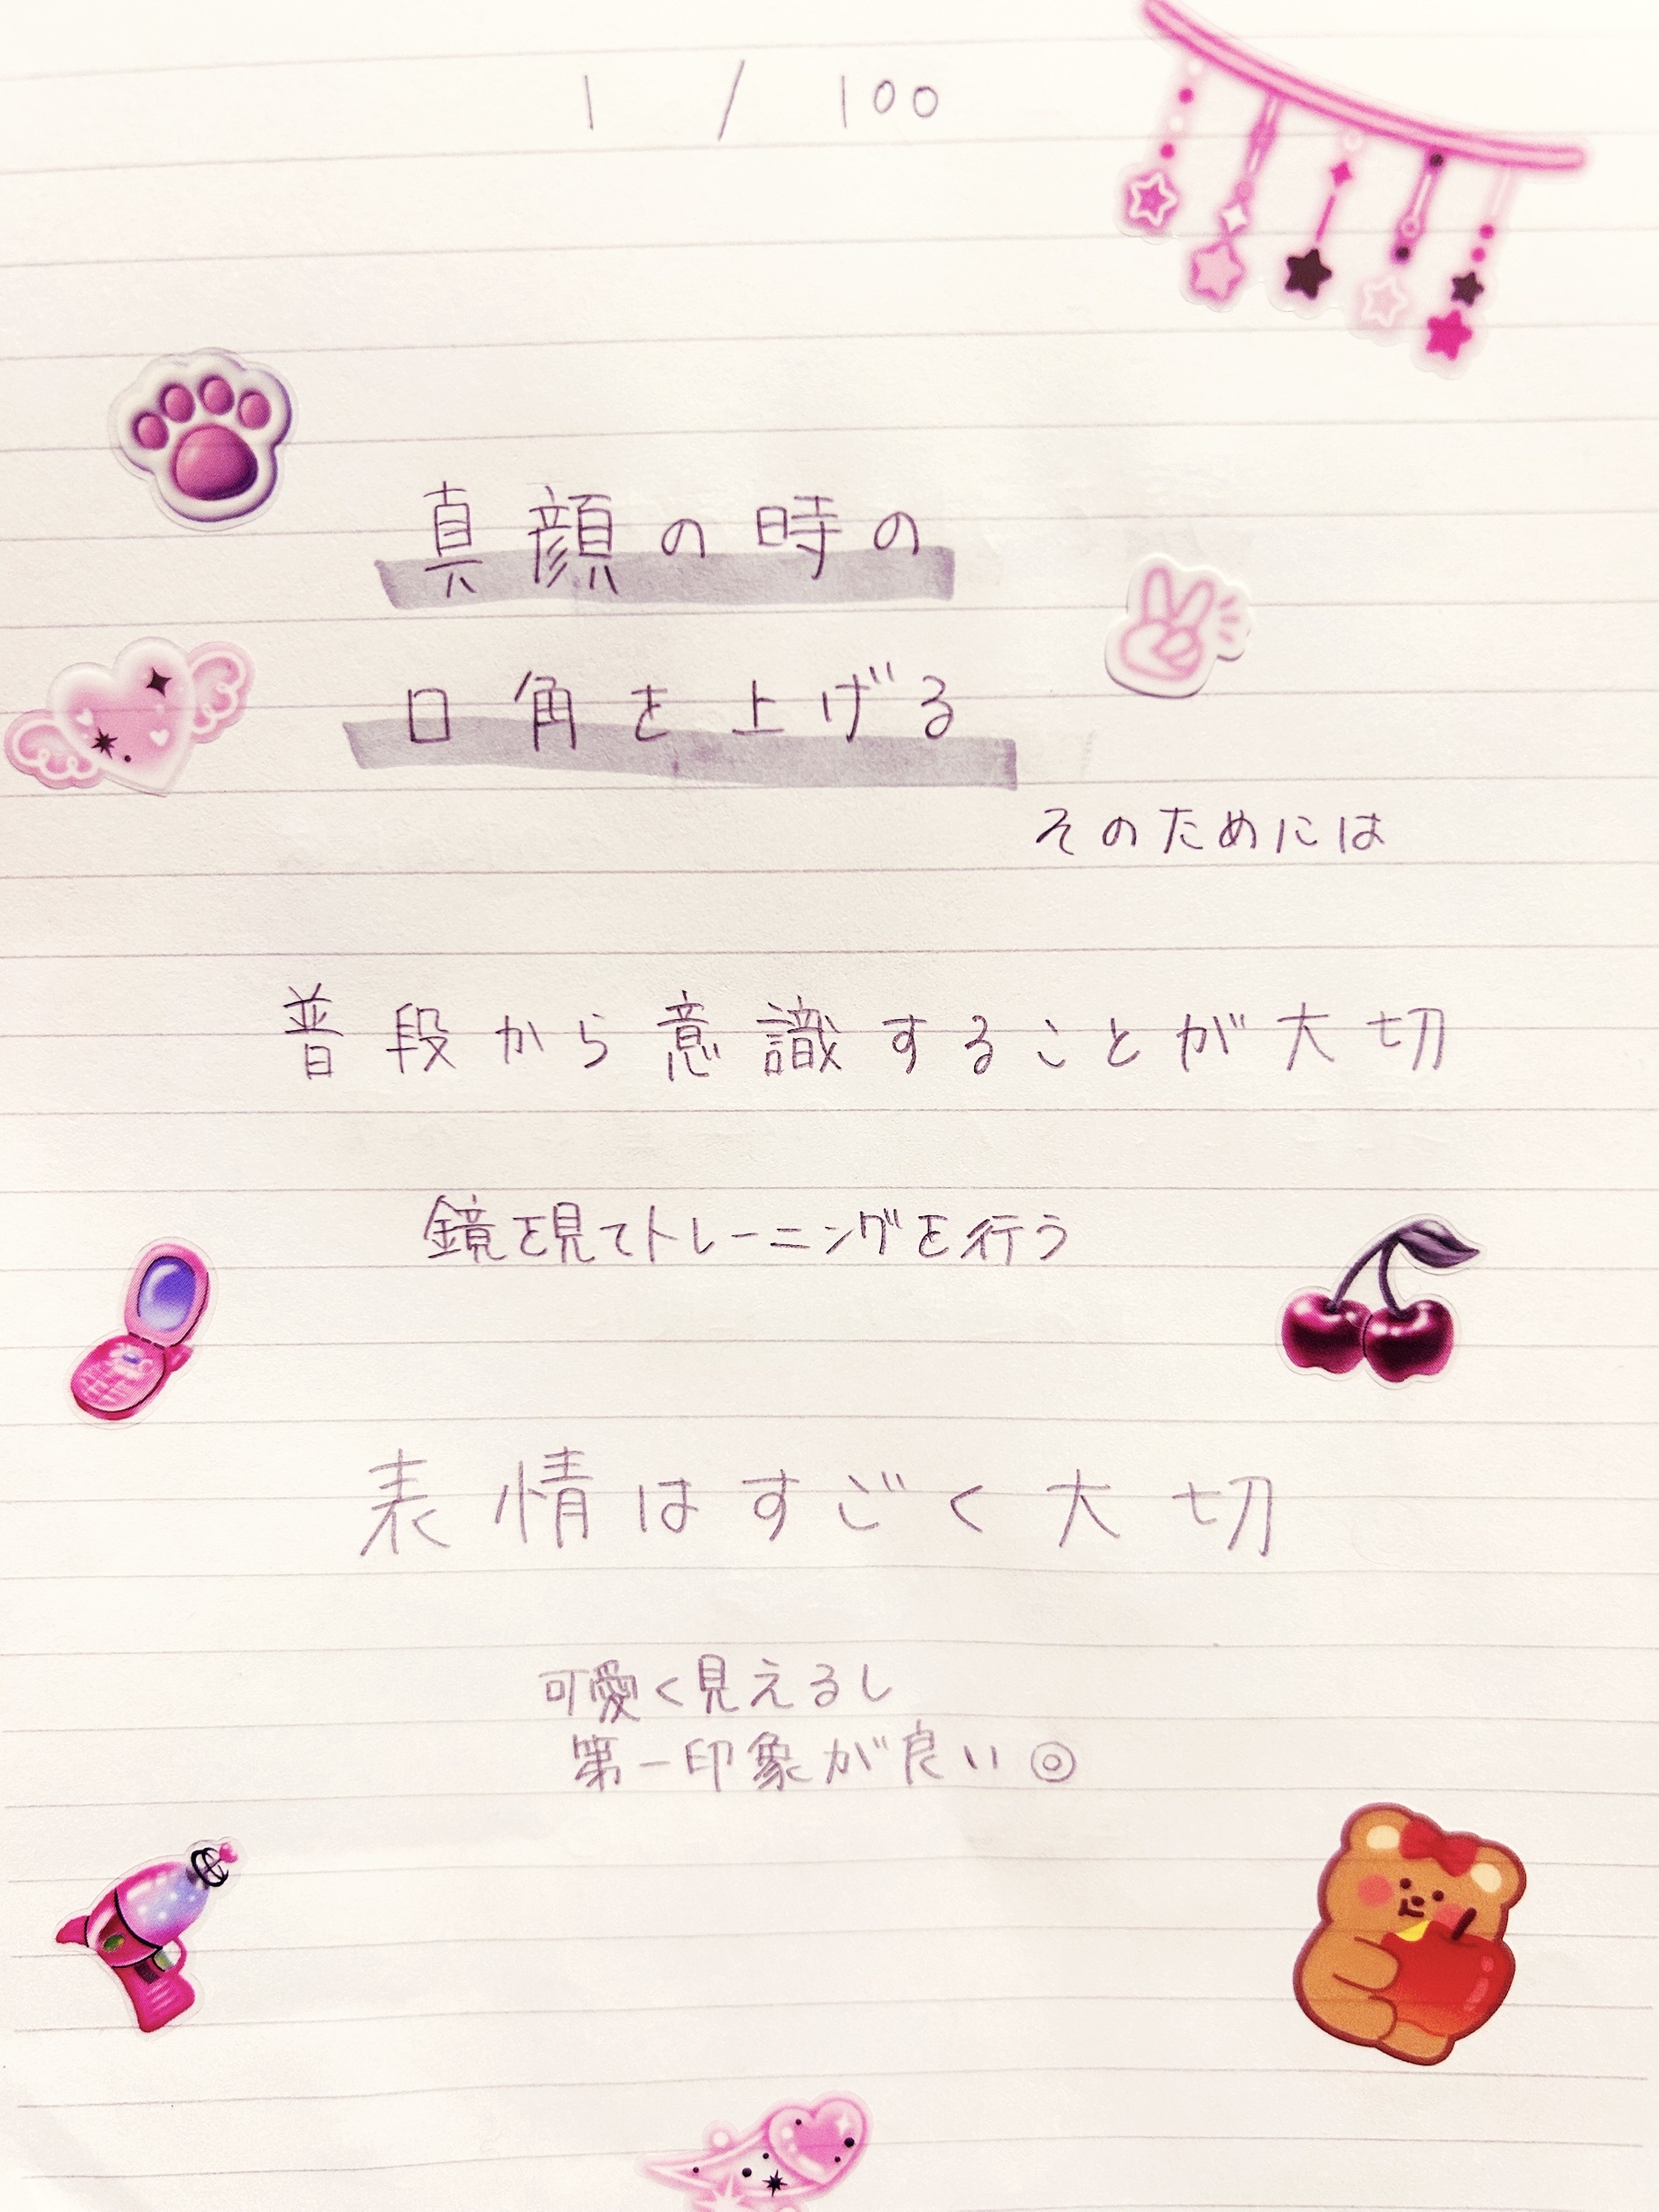 1 / 100
真顔の時の
口角を上げる
そのためには
普段から意識することが大切
鏡を見てトレーニングを行う
表情はすごく大切
可愛く見えるし
第一印象が良い◎